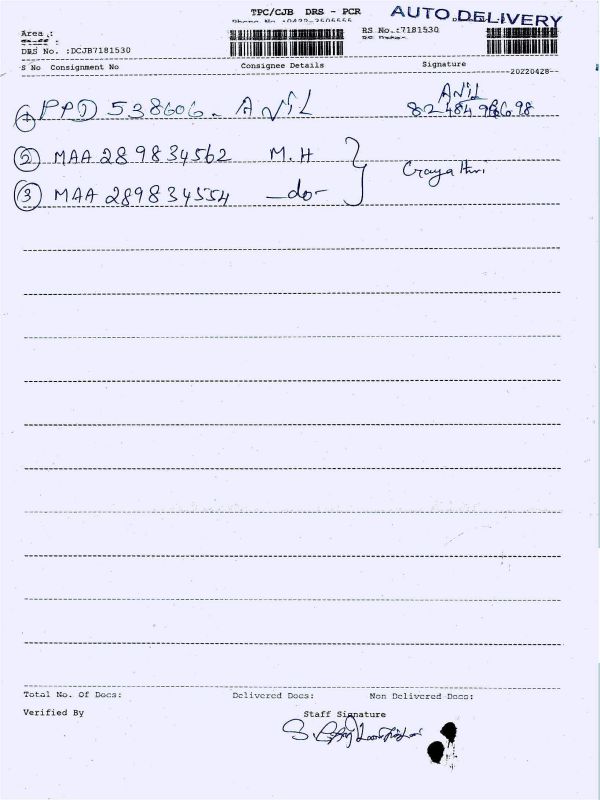 TPC/CJB DRS - PCR
AUTO DELIVERY
Area :
Staff :
RS No.:7181530
DRS No. :DCJB7181530
S No Consignment No Consignee Details Signature
20220428
1 PPD 538606 - ANIL ANIL
2 MAA 289834562 M.H
3 MAA 289834554 -do-
Total No. Of Docs: Delivered Docs: Non Delivered Docs:
Verified By Staff Signature